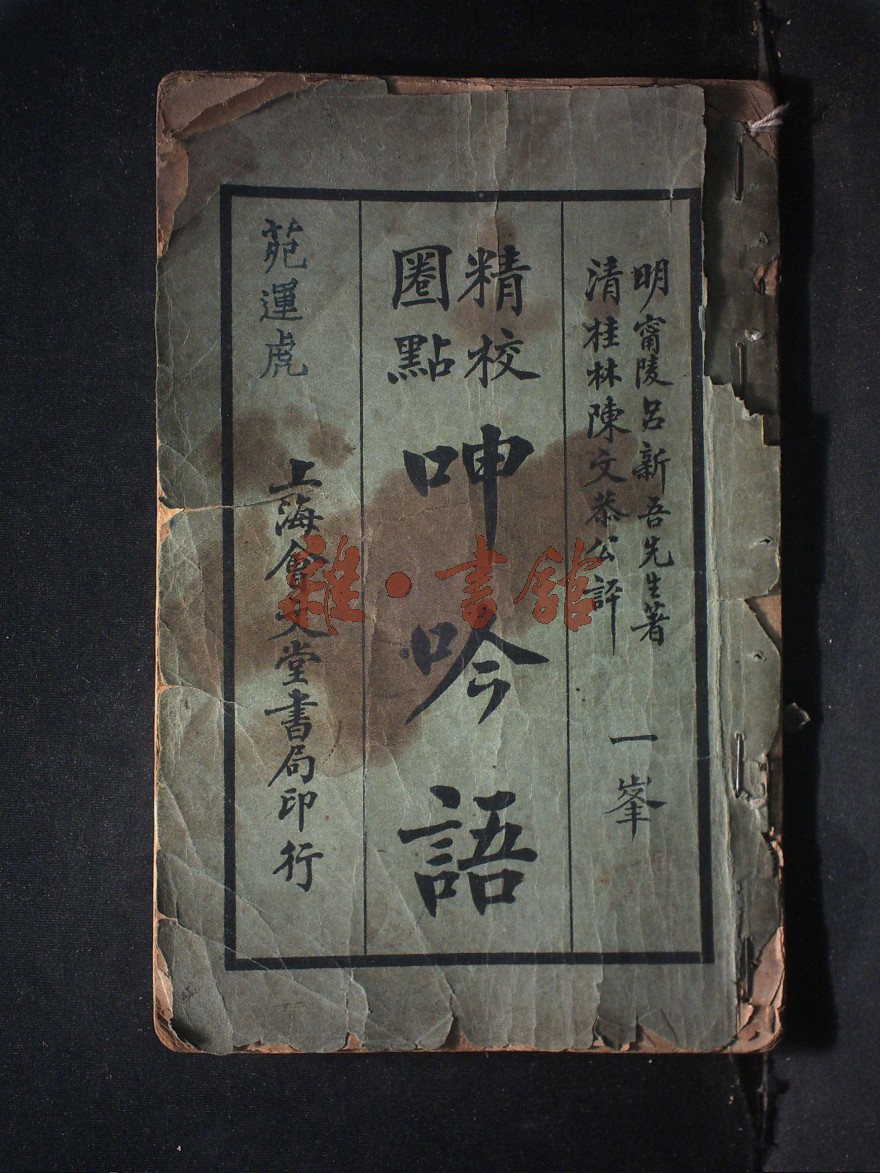 明甯陵呂新吾先生著
清桂林陳文恭公評
一峯
精校
圈點
呻吟語
苑運虎
上海會文堂書局印行
雜·書館